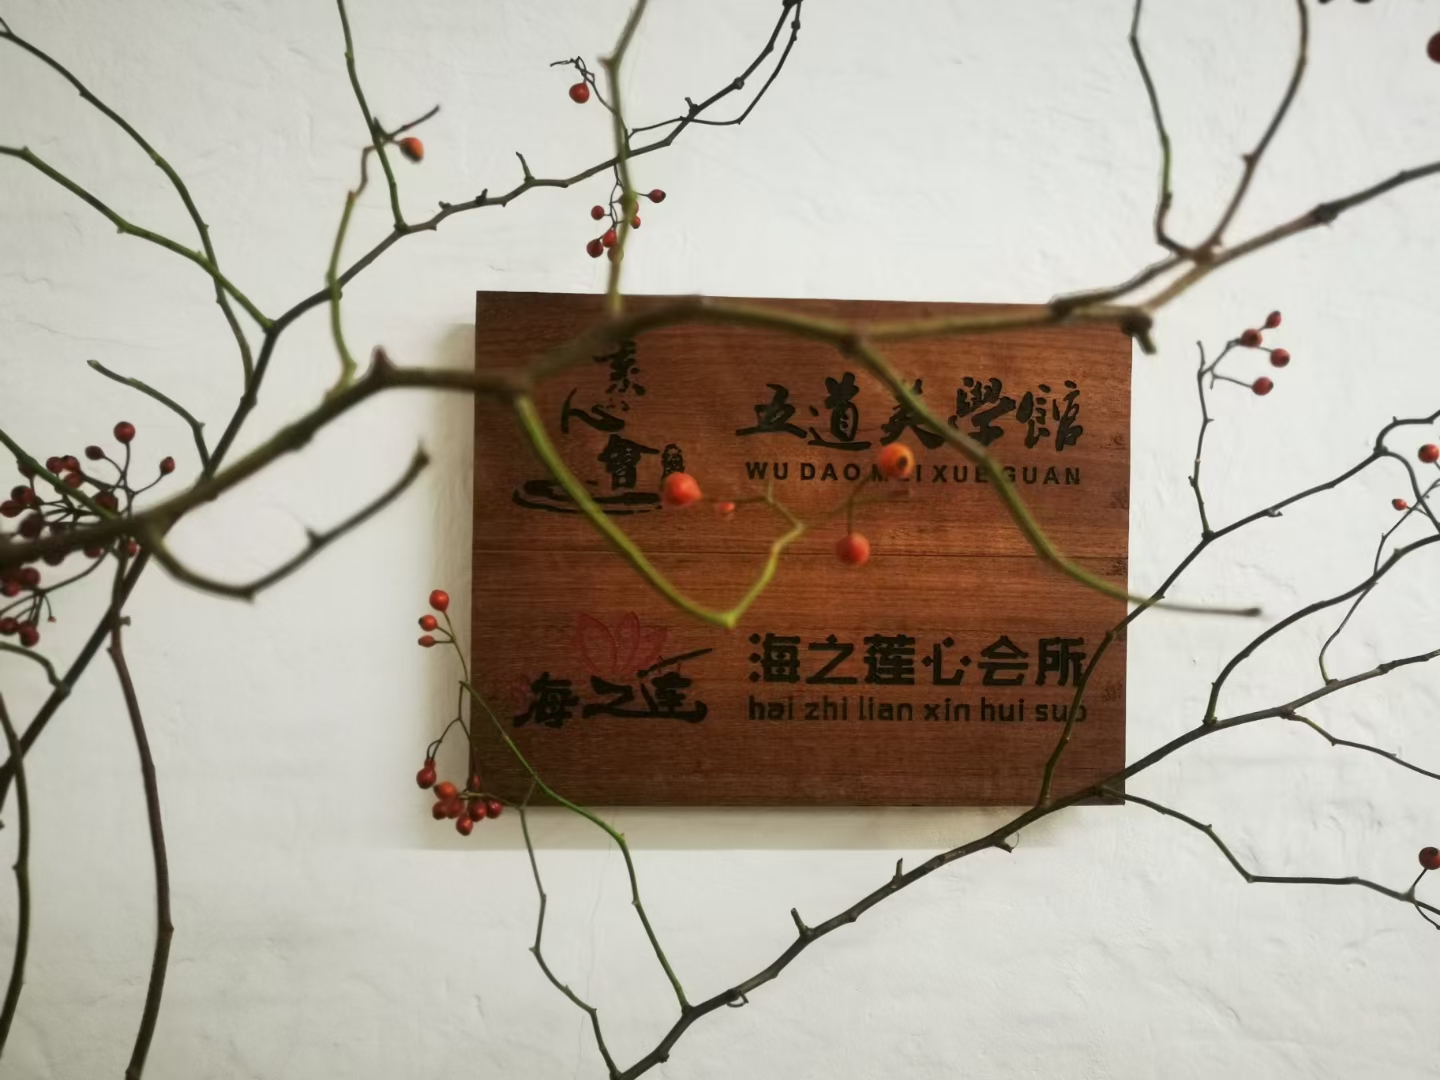 素心會
五道美學館
WU DAO MEI XUE GUAN
海之莲
海之莲心会所
hai zhi lian xin hui suo